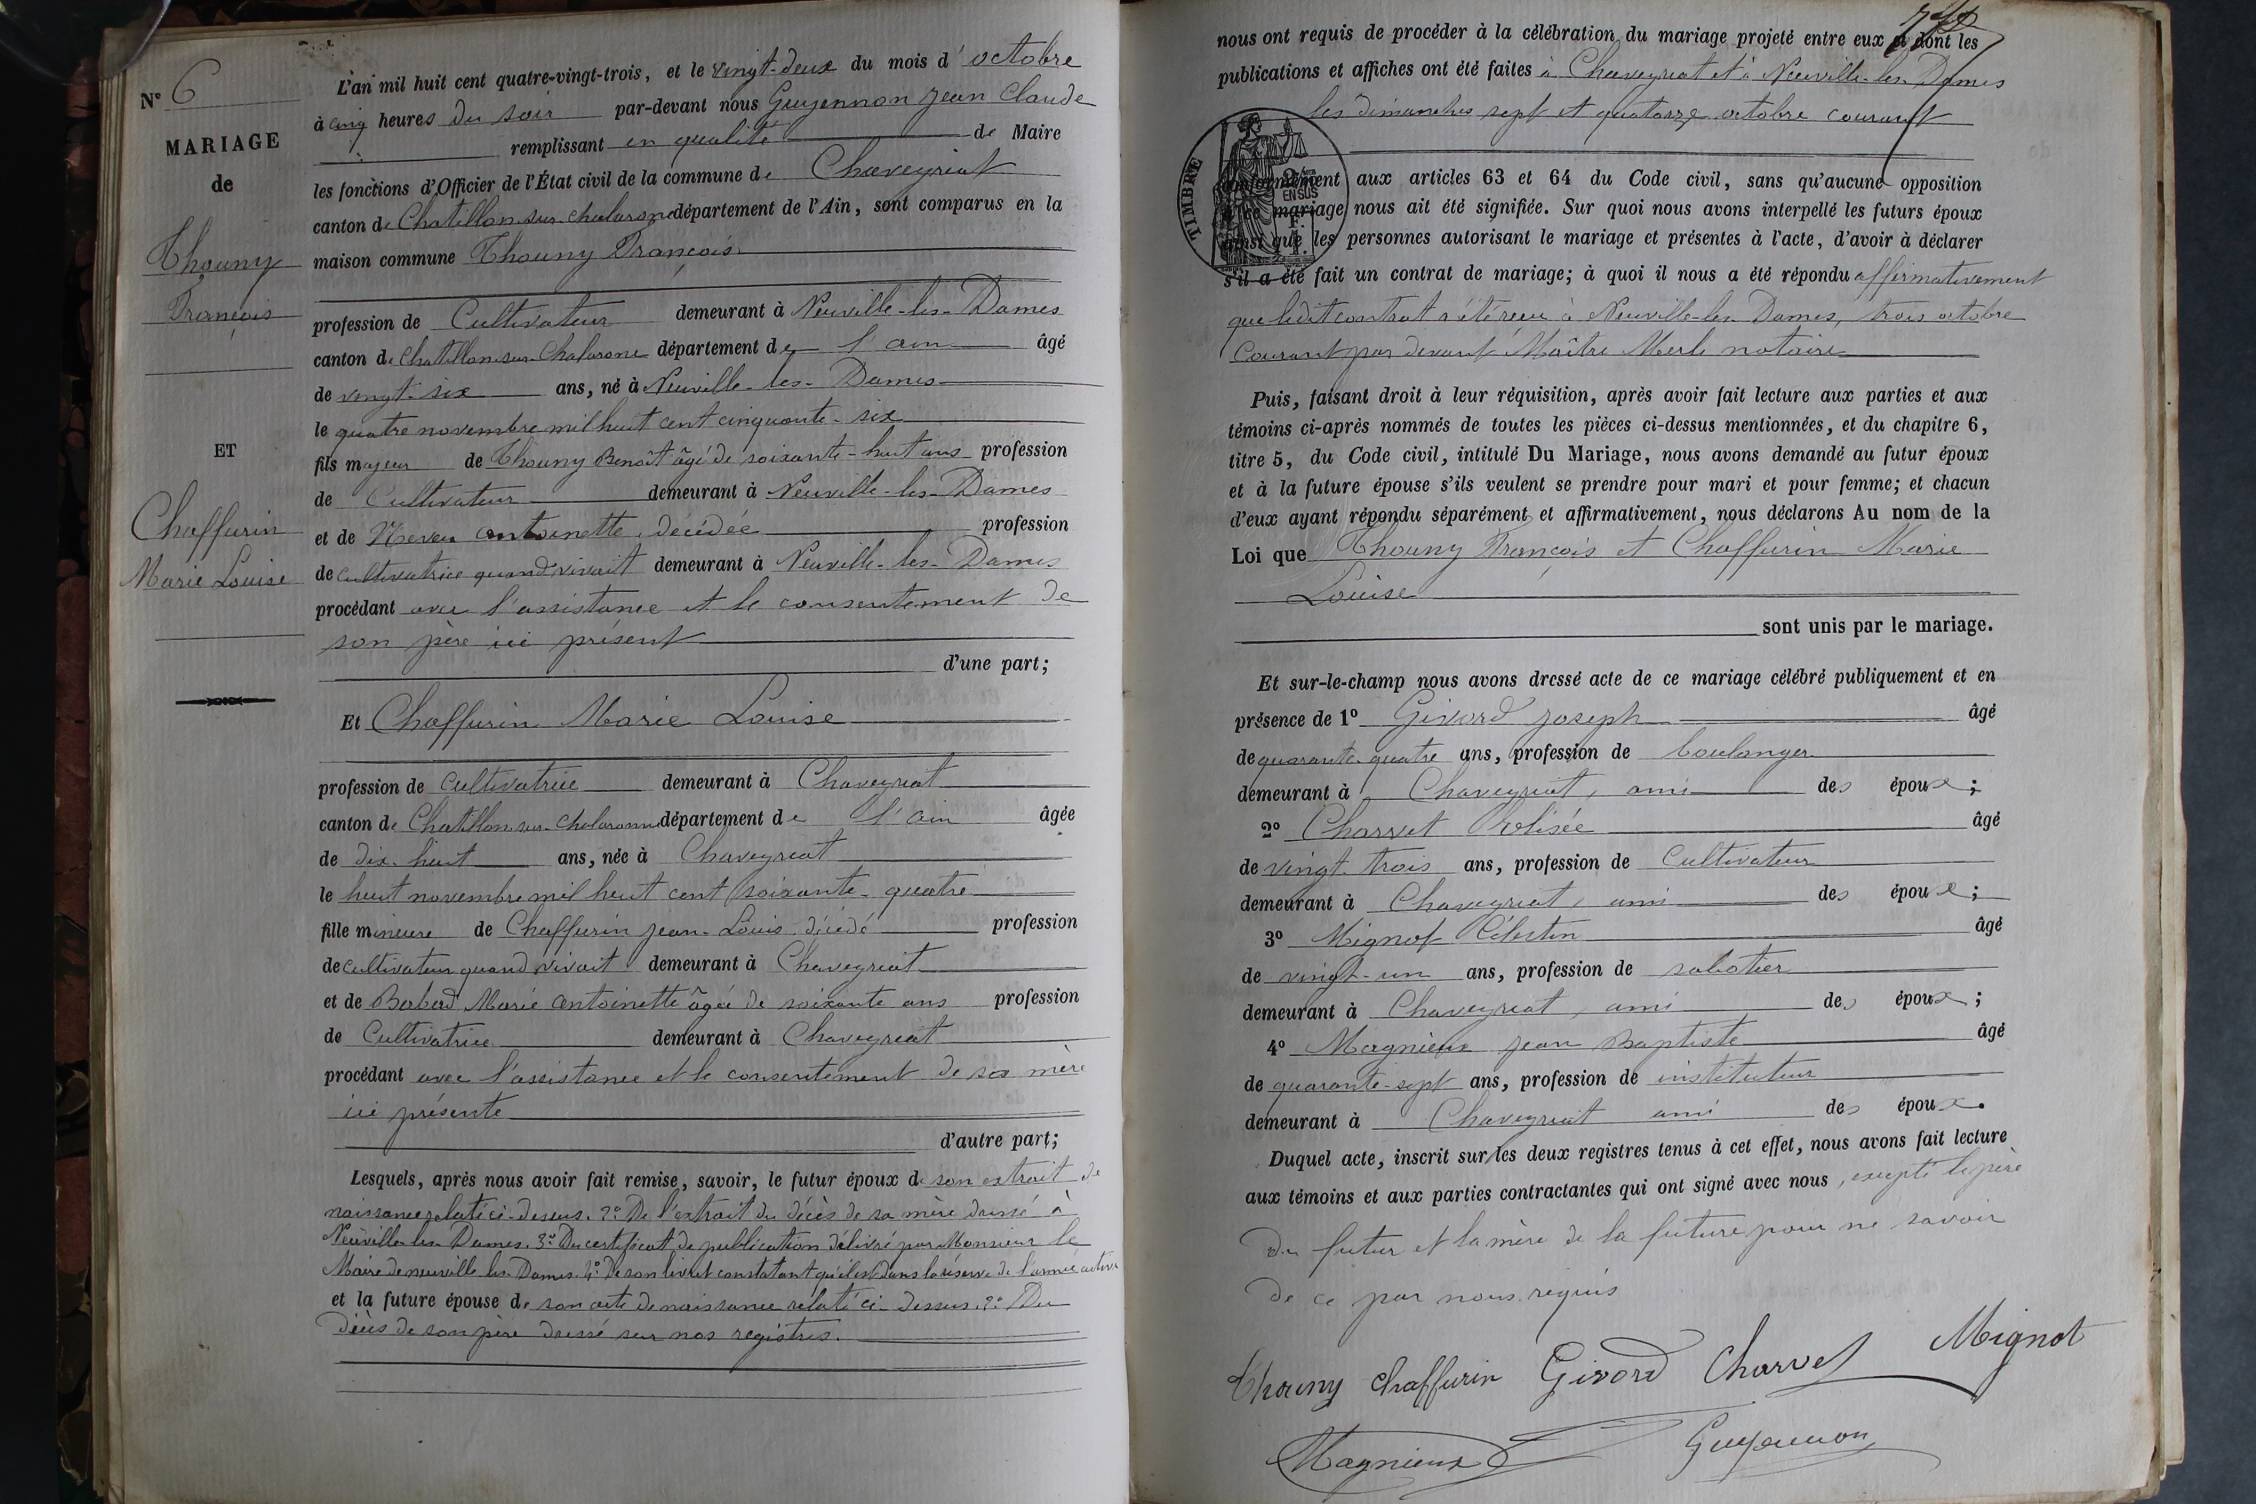 N° 6
MARIAGE
de
Thouny
François
ET
Chaffurin
Marie Louise
L'an mil huit cent quatre-vingt-trois, et le vingt-deux du mois d'octobre
à cinq heures du soir par-devant nous Guyennon Jean Claude
remplissant en qualité de Maire
les fonctions d'Officier de l'État civil de la commune de Chaveyriat
canton de Chatillon sur chalaronne département de l'Ain, sont comparus en la
maison commune Thouny François
profession de Cultivateur demeurant à Neuville-les-Dames
canton de Chatillon sur Chalaronne département de l'ain âgé
de vingt-six ans, né à Neuville-les-Dames
le quatre novembre mil huit cent cinquante-six
fils majeur de Thouny Benoît âgé de soixante-huit ans profession
de Cultivateur demeurant à Neuville-les-Dames
et de Neveu antoinette, décédée profession
de cultivatrice quand vivait demeurant à Neuville-les-Dames
procédant avec l'assistance et le consentement de
son père ici présent
d'une part;
Et Chaffurin Marie Louise
profession de cultivatrice demeurant à Chaveyriat
canton de Chatillon sur Chalaronne département de l'ain âgée
de dix-huit ans, née à Chaveyriat
le huit novembre mil huit cent soixante-quatre
fille mineure de Chaffurin Jean-Louis décédé profession
de cultivateur quand vivait demeurant à Chaveyriat
et de Marie antoinette âgée de soixante ans profession
de Cultivatrice demeurant à Chaveyriat
procédant avec l'assistance et le consentement de sa mère
ici présente
d'autre part;
Lesquels, après nous avoir fait remise, savoir, le futur époux de son extrait de
naissance relaté ci-dessus. 2° De l'extrait du décès de sa mère dressé à
Neuville les Dames. 3° Du certificat de publication délivré par Monsieur le
Maire de neuville les Dames. 4° De son livret constatant qu'il est dans la réserve de l'armée active
et la future épouse de son acte de naissance relaté ci-dessus. 2° Du
décès de son père dressé sur nos registres.
nous ont requis de procéder à la célébration du mariage projeté entre eux et dont les
publications et affiches ont été faites à Chaveyriat et à Neuville-les-Dames
les dimanches sept et quatorze octobre courant
TIMBRE
2/10es
EN SUS
F.
conformément aux articles 63 et 64 du Code civil, sans qu'aucune opposition
à ce mariage nous ait été signifiée. Sur quoi nous avons interpellé les futurs époux
ainsi que les personnes autorisant le mariage et présentes à l'acte, d'avoir à déclarer
s'il a été fait un contrat de mariage; à quoi il nous a été répondu affirmativement
que ledit contrat a été reçu à Neuville-les-Dames, trois octobre
courant par devant Maître Merle notaire
Puis, faisant droit à leur réquisition, après avoir fait lecture aux parties et aux
témoins ci-après nommés de toutes les pièces ci-dessus mentionnées, et du chapitre 6,
titre 5, du Code civil, intitulé Du Mariage, nous avons demandé au futur époux
et à la future épouse s'ils veulent se prendre pour mari et pour femme; et chacun
d'eux ayant répondu séparément et affirmativement, nous déclarons Au nom de la
Loi que Thouny François et Chaffurin Marie
Louise
sont unis par le mariage.
Et sur-le-champ nous avons dressé acte de ce mariage célébré publiquement et en
présence de 1° Givord Joseph âgé
de quarante-quatre ans, profession de boulanger
demeurant à Chaveyriat, ami des époux;
2° Charvet Élisée âgé
de vingt-trois ans, profession de Cultivateur
demeurant à Chaveyriat, ami des époux;
3° Mignot Célestin âgé
de vingt-un ans, profession de sabotier
demeurant à Chaveyriat, ami des époux;
4° Magnieux Jean Baptiste âgé
de quarante-sept ans, profession de instituteur
demeurant à Chaveyriat ami des époux.
Duquel acte, inscrit sur les deux registres tenus à cet effet, nous avons fait lecture
aux témoins et aux parties contractantes qui ont signé avec nous, excepté le père
du futur et la mère de la future pour ne savoir
de ce par nous requis
Thouny Chaffurin Givord Charvet Mignot
Magnieux Guyennon